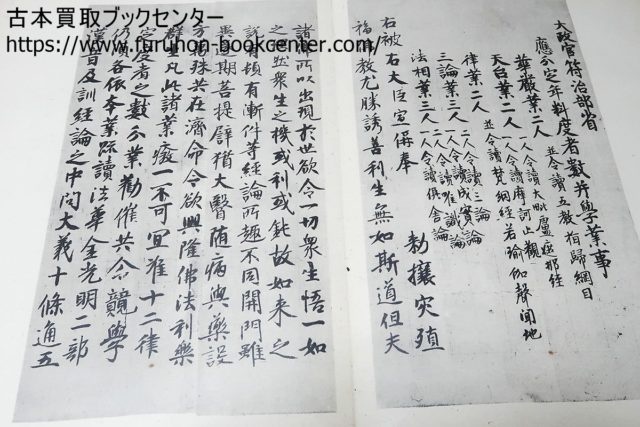 古本買取ブックセンター
https://www.furuhon-bookcenter.com/
太政官符治部省
應分定年料度者數并學業事
華嚴業二人 並令讀五教指歸綱目
天台業二人 一人令讀大毗盧遮那經 一人令讀摩訶止觀
律業二人 並令讀梵網經若瑜伽聲聞地
三論業三人 二人令讀三論 一人令讀成實論
法相業三人 二人令讀唯識論 一人令讀俱舍論
右被右大臣宣偁奉 勅攘災殖
福佛教尤勝誘善利生無如斯道但夫
諸佛所以出現於世欲令一切衆生悟一如
之理然衆生之機或利或鈍故如来之
說有頓有漸件等經論所趣不同開門雖
異遂期菩提譬猶大醫随病與藥設
方萬殊共在濟命今欲興隆佛法利樂
群生凡此諸業廢一不可宜准十二律
定度者之數分業勸催共令競學
仍須各依本業疏讀法華金光明二部
漢音及訓經論之中問大義十條通五